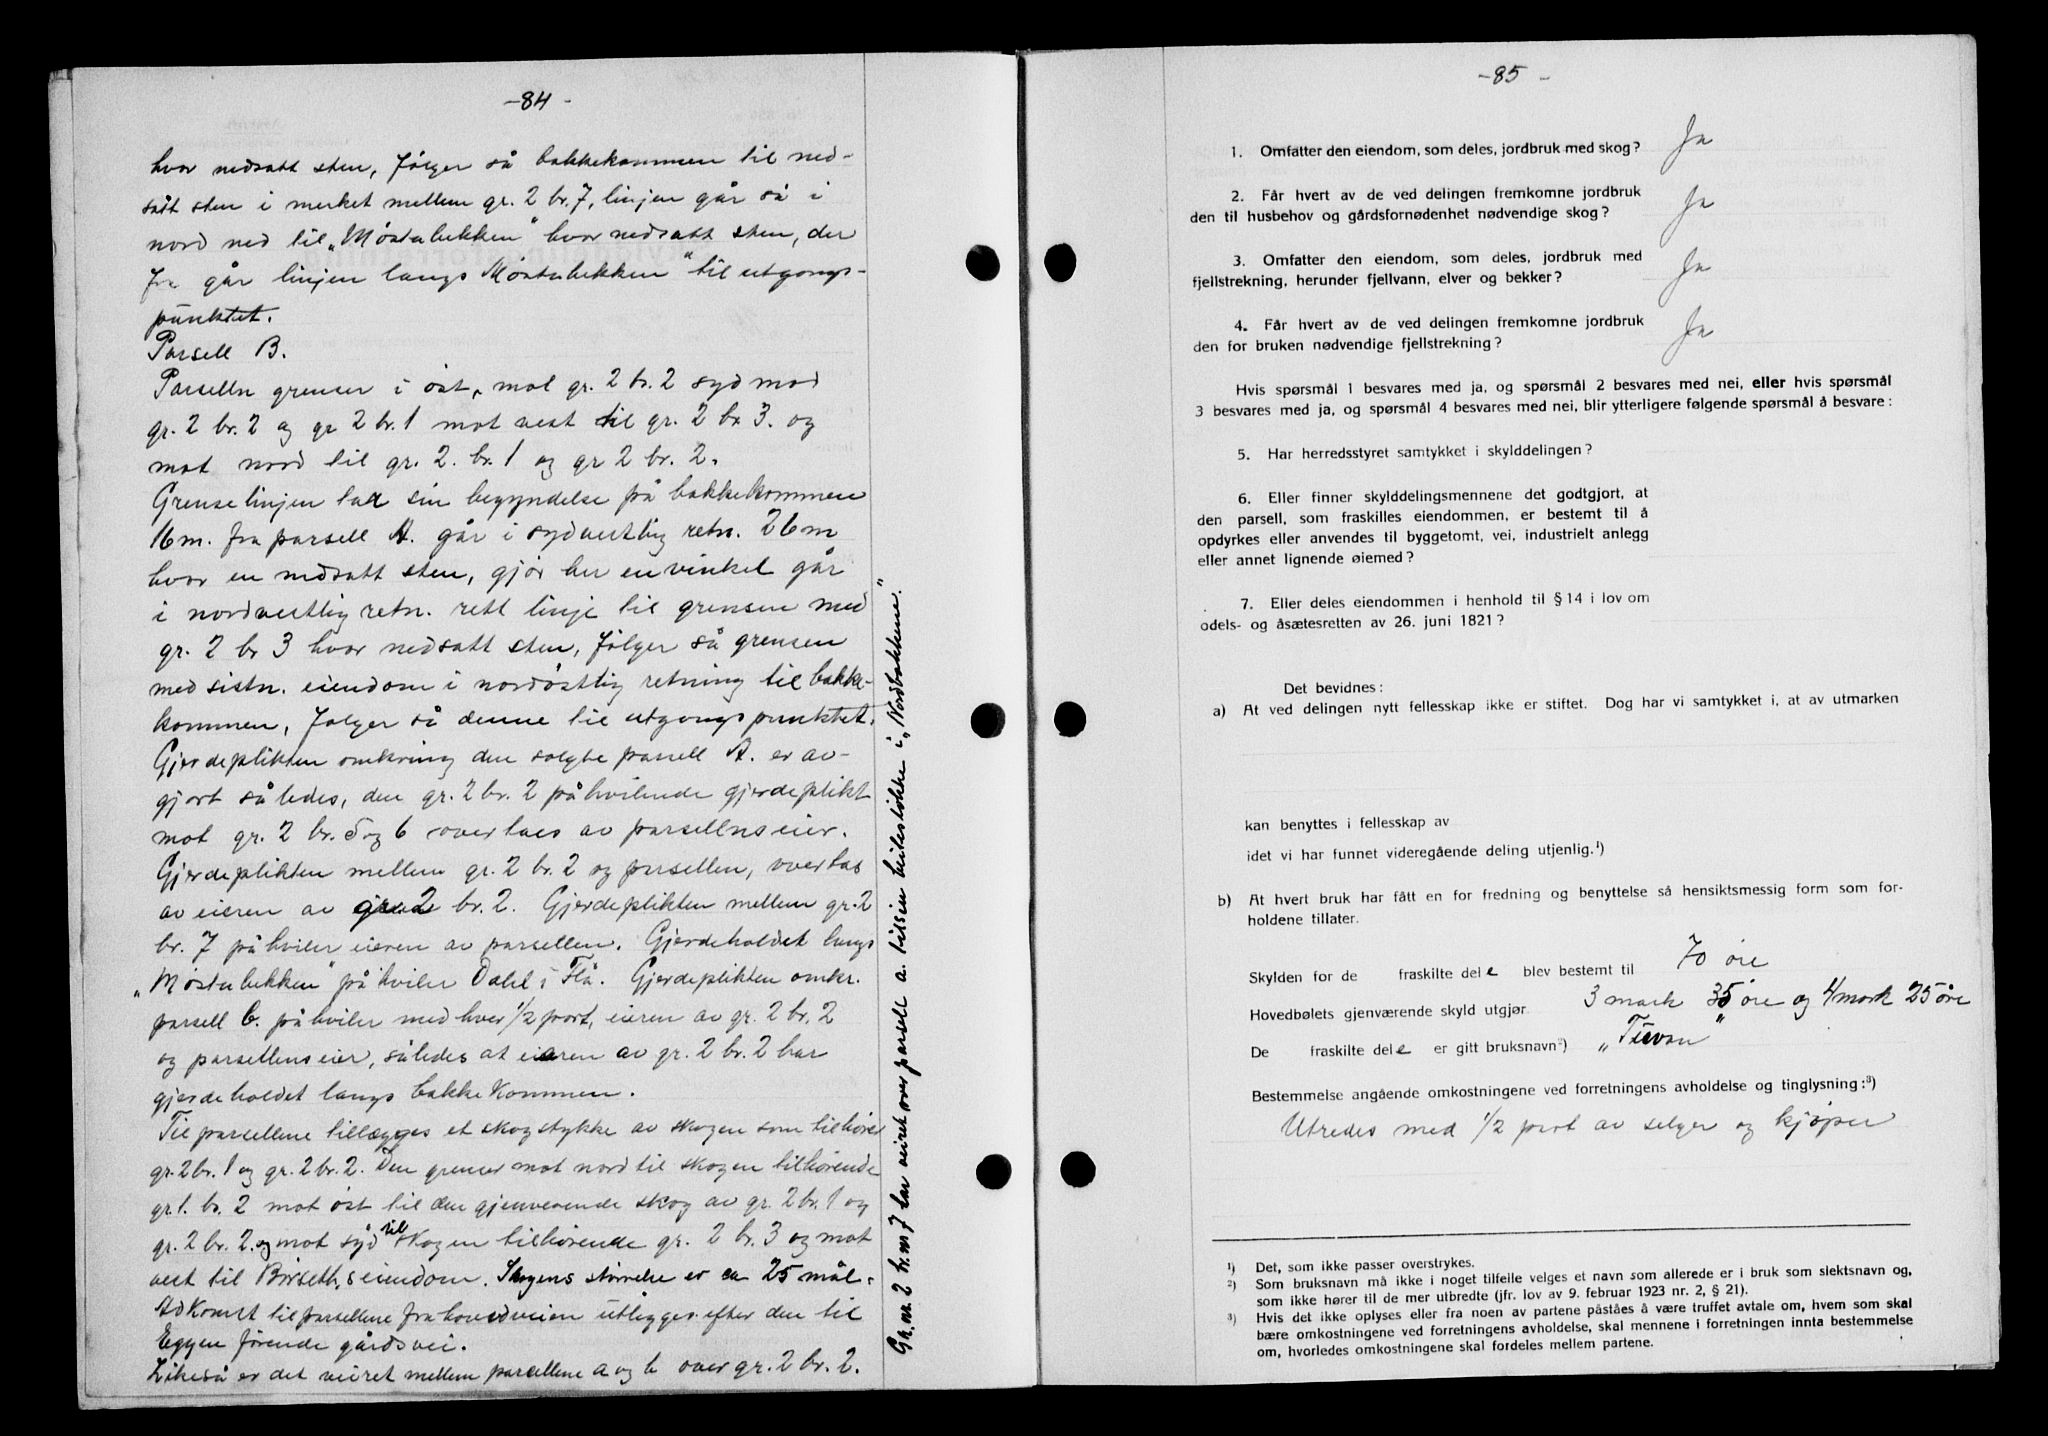 -84-
hvor nedsatt sten, følger så bakkekammen til ned-
satt sten i merket mellem gr. 2 br. 7, linjen går så i
nord ned til „Møstabekken" hvor nedsatt sten, der
fra går linjen langs Møstabekken" til utgangs-
punktet.
Parsell B.
Parsellen grenser i øst, mot gr. 2 br. 2 syd mod
gr. 2 br. 2 og gr 2 br. 1 mot vest til gr. 2 br 3. og
mot nord til gr. 2. br. 1 og gr 2 br. 2.
Grenselinjen tar sin begyndelse på bakkekammen
16 m. fra parsell A. går i sydvestlig retn. 26 m
hvor en nedsatt sten, gjør her en vinkel går
i nordvestlig retn. rett linje til grensen med
gr. 2 br 3 hvor nedsatt sten, følger så grensen
med sistn. eiendom i nordøstlig retning til bakke-
kammen, følger så denne til utgangspunktet.
Gjerdeplikten omkring den solgte parsell A. er av-
gjort således, den gr. 2 br. 2 påhvilende gjerdeplikt
mot gr. 2 br. 5 og 6 overtaes av parsellens eier.
Gjerdeplikten mellem gr. 2 br. 2 og parsellen, overtas
av eieren av gr. 2 br. 2. Gjerdeplikten mellem gr. 2
br. 7 påhviler eieren av parsellen. Gjerdeholdet langs
„Møstabekken" påhviler Dahl i Flå. Gjerdeplikten omkr.
parsell b. påhviler med hver 1/2 part, eieren av gr. 2 br. 2
og parsellens eier, således at eieren av gr. 2 br. 2 har
gjerdeholdet langs bakkekammen.
Til parsellene tillægges et skogstykke av skogen som tilhører
gr. 2 br. 1 og gr. 2 br. 2. Den grenser mot nord til skogen tilhørende
gr. 1. br. 2 mot øst til den gjenværende skog av gr. 2 br. 1 og
gr. 2 br. 2. og mot syd til skogen tilhørende gr. 2 br. 3 og mot
vest til Birseth, s eiendom. Skogens størrelse er ca 25 mål.
Adkomst til parsellene fra hovedveien utlegges efter den til
Eggen førende gårdsvei.
Likeså er det veiret mellem parsellene a og b over gr. 2 br. 2.
Gr. nr. 2 br. nr 7 har veiret over parsell a. til sin beitestrekke i „Nordbakkene."
-85-
1. Omfatter den eiendom, som deles, jordbruk med skog? Ja
2. Får hvert av de ved delingen fremkomne jordbruk
den til husbehov og gårdsfornødenhet nødvendige skog? Ja
3. Omfatter den eiendom, som deles, jordbruk med
fjellstrekning, herunder fjellvann, elver og bekker? Ja
4. Får hvert av de ved delingen fremkomne jordbruk
den for bruken nødvendige fjellstrekning? Ja
Hvis spørsmål 1 besvares med ja, og spørsmål 2 besvares med nei, eller hvis spørsmål
3 besvares med ja, og spørsmål 4 besvares med nei, blir ytterligere følgende spørsmål å besvare:
5. Har herredsstyret samtykket i skylddelingen?
6. Eller finner skylddelingsmennene det godtgjort, at
den parsell, som fraskilles eiendommen, er bestemt til å
opdyrkes eller anvendes til byggetomt, vei, industrielt anlegg
eller annet lignende øiemed?
7. Eller deles eiendommen i henhold til § 14 i lov om
odels- og åsætesretten av 26. juni 1821?
Det bevidnes:
a) At ved delingen nytt fellesskap ikke er stiftet. Dog har vi samtykket i, at av utmarken
kan benyttes i fellesskap av
idet vi har funnet videregående deling utjenlig.¹)
b) At hvert bruk har fått en for fredning og benyttelse så hensiktsmessig form som for-
holdene tillater.
Skylden for de fraskilte dele blev bestemt til 70 øre
Hovedbølets gjenværende skyld utgjør 3 mark 35 øre og 4 mark 25 øre
De fraskilte dele er gitt bruksnavn²) „Tuvan"
Bestemmelse angående omkostningene ved forretningens avholdelse og tinglysning:³)
Utredes med 1/2 part av selger og kjøper
¹) Det, som ikke passer overstrykes.
²) Som bruksnavn må ikke i noget tilfelle velges et navn som allerede er i bruk som slektsnavn og,
som ikke hører til de mer utbredte (jfr. lov av 9. februar 1923 nr. 2, § 21).
³) Hvis det ikke oplyses eller fra noen av partene påståes å være truffet avtale om, hvem som skal
bære omkostningene ved forretningens avholdelse, skal mennene i forretningen innta bestemmelse
om, hvorledes omkostningene skal fordeles mellem partene.